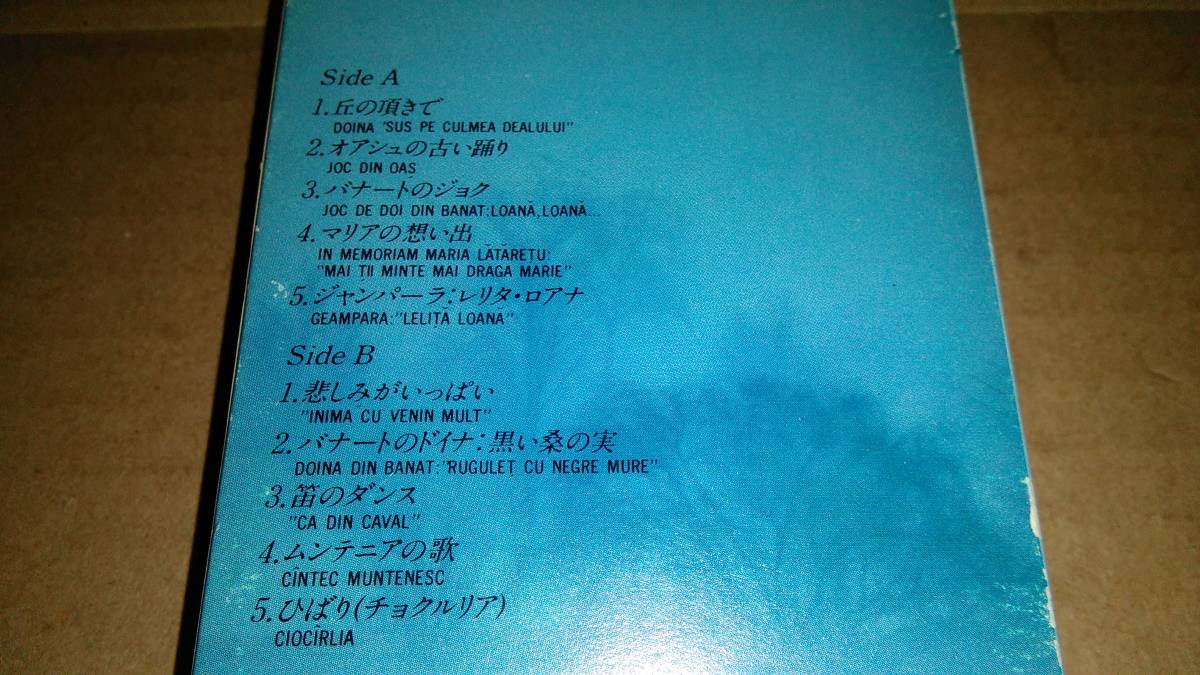 Side A
1. 丘の頂きで
DOINA "SUS PE CULMEA DEALULUI"
2. オアシュの古い踊り
JOC DIN OAȘ
3. バナートのジョク
JOC DE DOI DIN BANAT:LOANĂ, LOANĂ...
4. マリアの想い出
IN MEMORIAM MARIA LĂTĂRETU:
"MAI TII MINTE MAI DRAGA MARIE"
5. ジャンパーラ:レリタ・ロアナ
GEAMPARA:"LELIȚĂ LOANĂ"
Side B
1. 悲しみがいっぱい
"INIMA CU VENIN MULT"
2. バナートのドイナ:黒い桑の実
DOINA DIN BANAT:"RUGULEȚ CU NEGRE MURE"
3. 笛のダンス
"CA DIN CAVAL"
4. ムンテニアの歌
CÎNTEC MUNTENESC
5. ひばり(チョクルリア)
CIOCÎRLIA